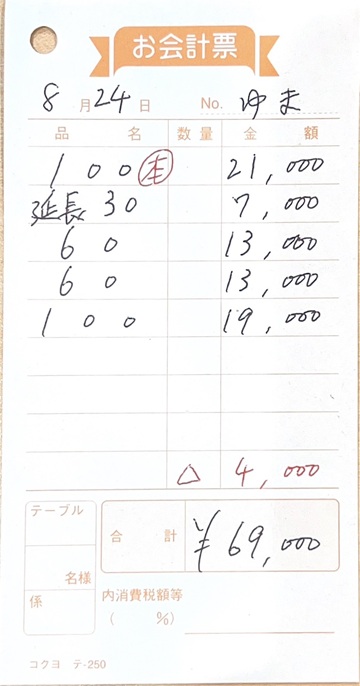 お会計票
8月24日 No. ゆま
品名 数量 金額
100 本 21,000
延長30 7,000
60 13,000
60 13,000
100 19,000
△ 4,000
テーブル
名様
係
合計 ¥69,000
内消費税額等
( %)
コクヨ テ-250